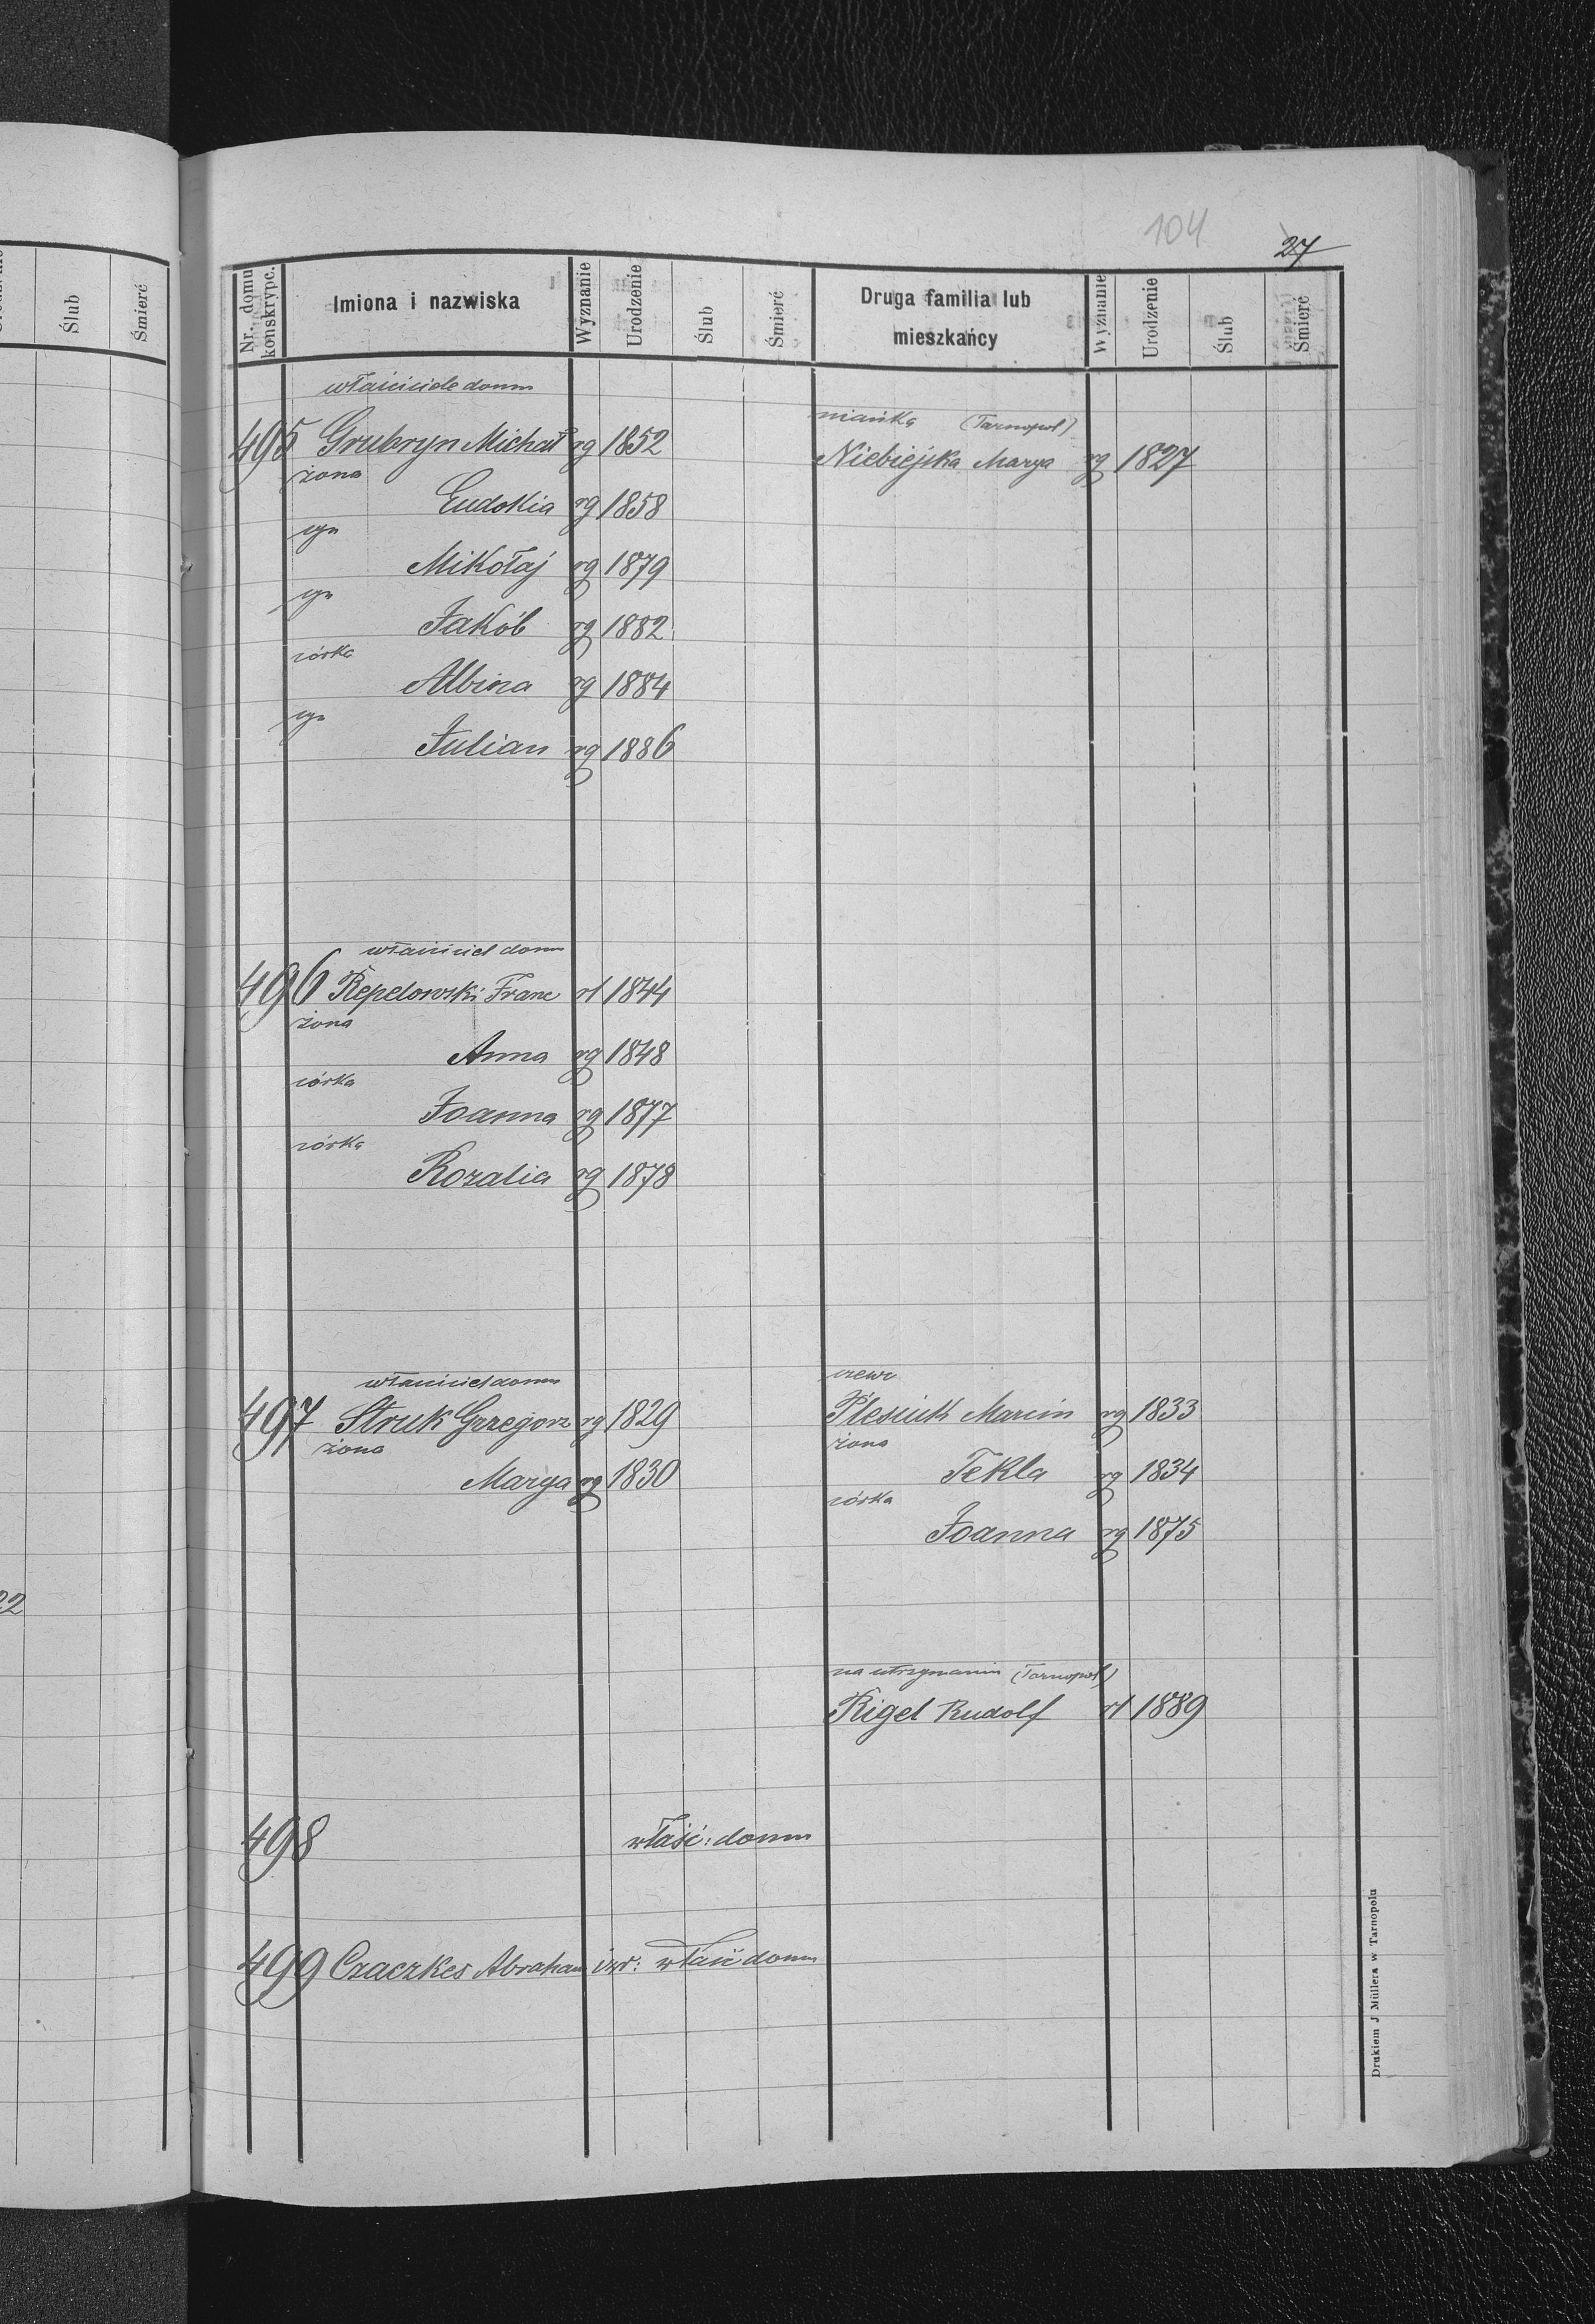 104
27
Ślub
Śmierć
Nr. domu konskrypc.
Imiona i nazwiska
Wyznanie
Urodzenie
Ślub
Śmierć
Druga familia lub
mieszkańcy
Wyznanie
Urodzenie
Ślub
Śmierć
właściciele domu
nianka (Tarnopol)
495 Grubryn Michał rg 1852
Niebiejska Marya rg 1827
żona
Eudokia rg 1858
syn
Mikołaj rg 1879
syn
Jakób rg 1882
córka
Albina rg 1884
syn
Julian rg 1886
właściciel domu
496 Repelowski Franc rł 1844
żona
Anna rg 1848
córka
Joanna rg 1877
córka
Rozalia rg 1878
właściciel domu
497 Struk Grzegorz rg 1829
żona
Marya rg 1830
szewc
Plesiuk Marcin rg 1833
żona
Tekla rg 1834
córka
Joanna rg 1875
22
na utrzymaniu (Tarnopol)
Rigel Rudolf rł 1889
498 właść: domu
499 Czaczkes Abraham izr: właść domu
Drukiem J Müllera w Tarnopolu